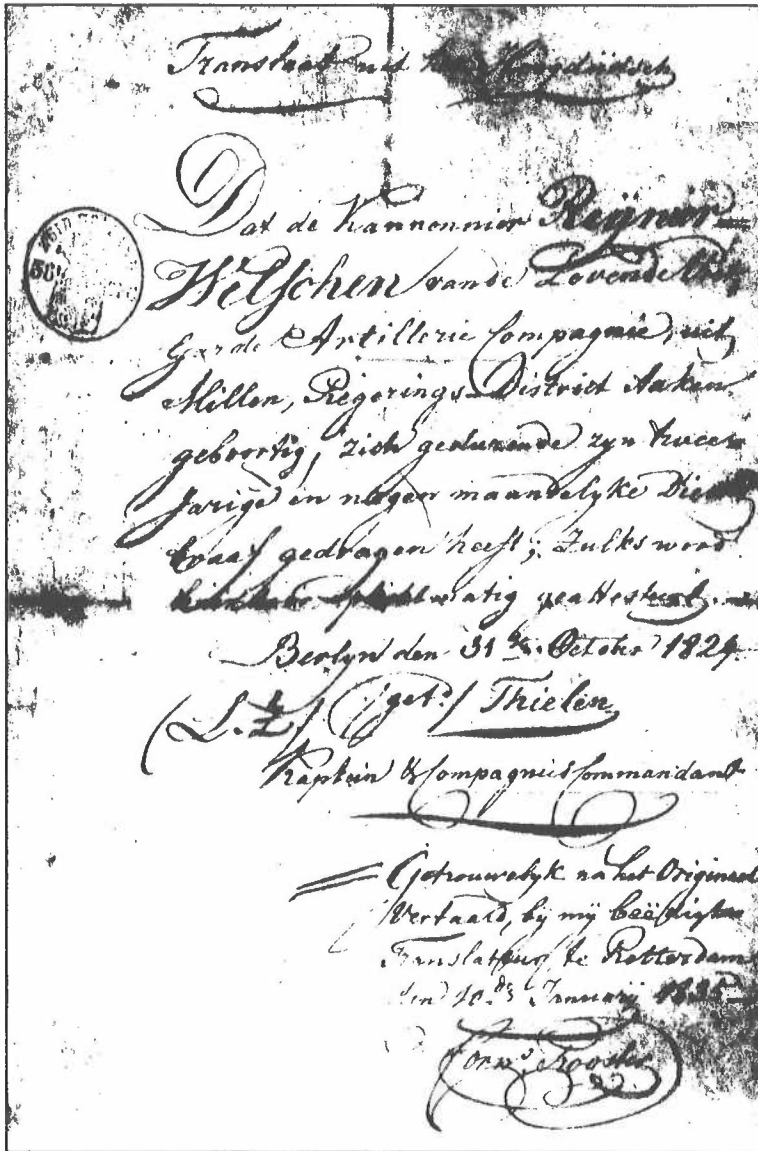 Translaat uit het Hoogduitsch
Dat de Kannonnier Reijner
Welschen van de
Garde Artillerie Compagnie, uit
Millen, Regerings-District Aaken
geboortig, zich gedurende zyn twee
Jarige en negen maandelyke Dienst
braaf gedragen heeft; Zulks word
geattesteerd.
Berlyn den 31 October 1824
(L. S.) (get.) Thielen
Kaptein & Compagnies Commandant
Getrouwelyk na het Origineel
Vertaald, by my beëedigde
Translateur te Rotterdam
den 10 January
Corns. Trooster